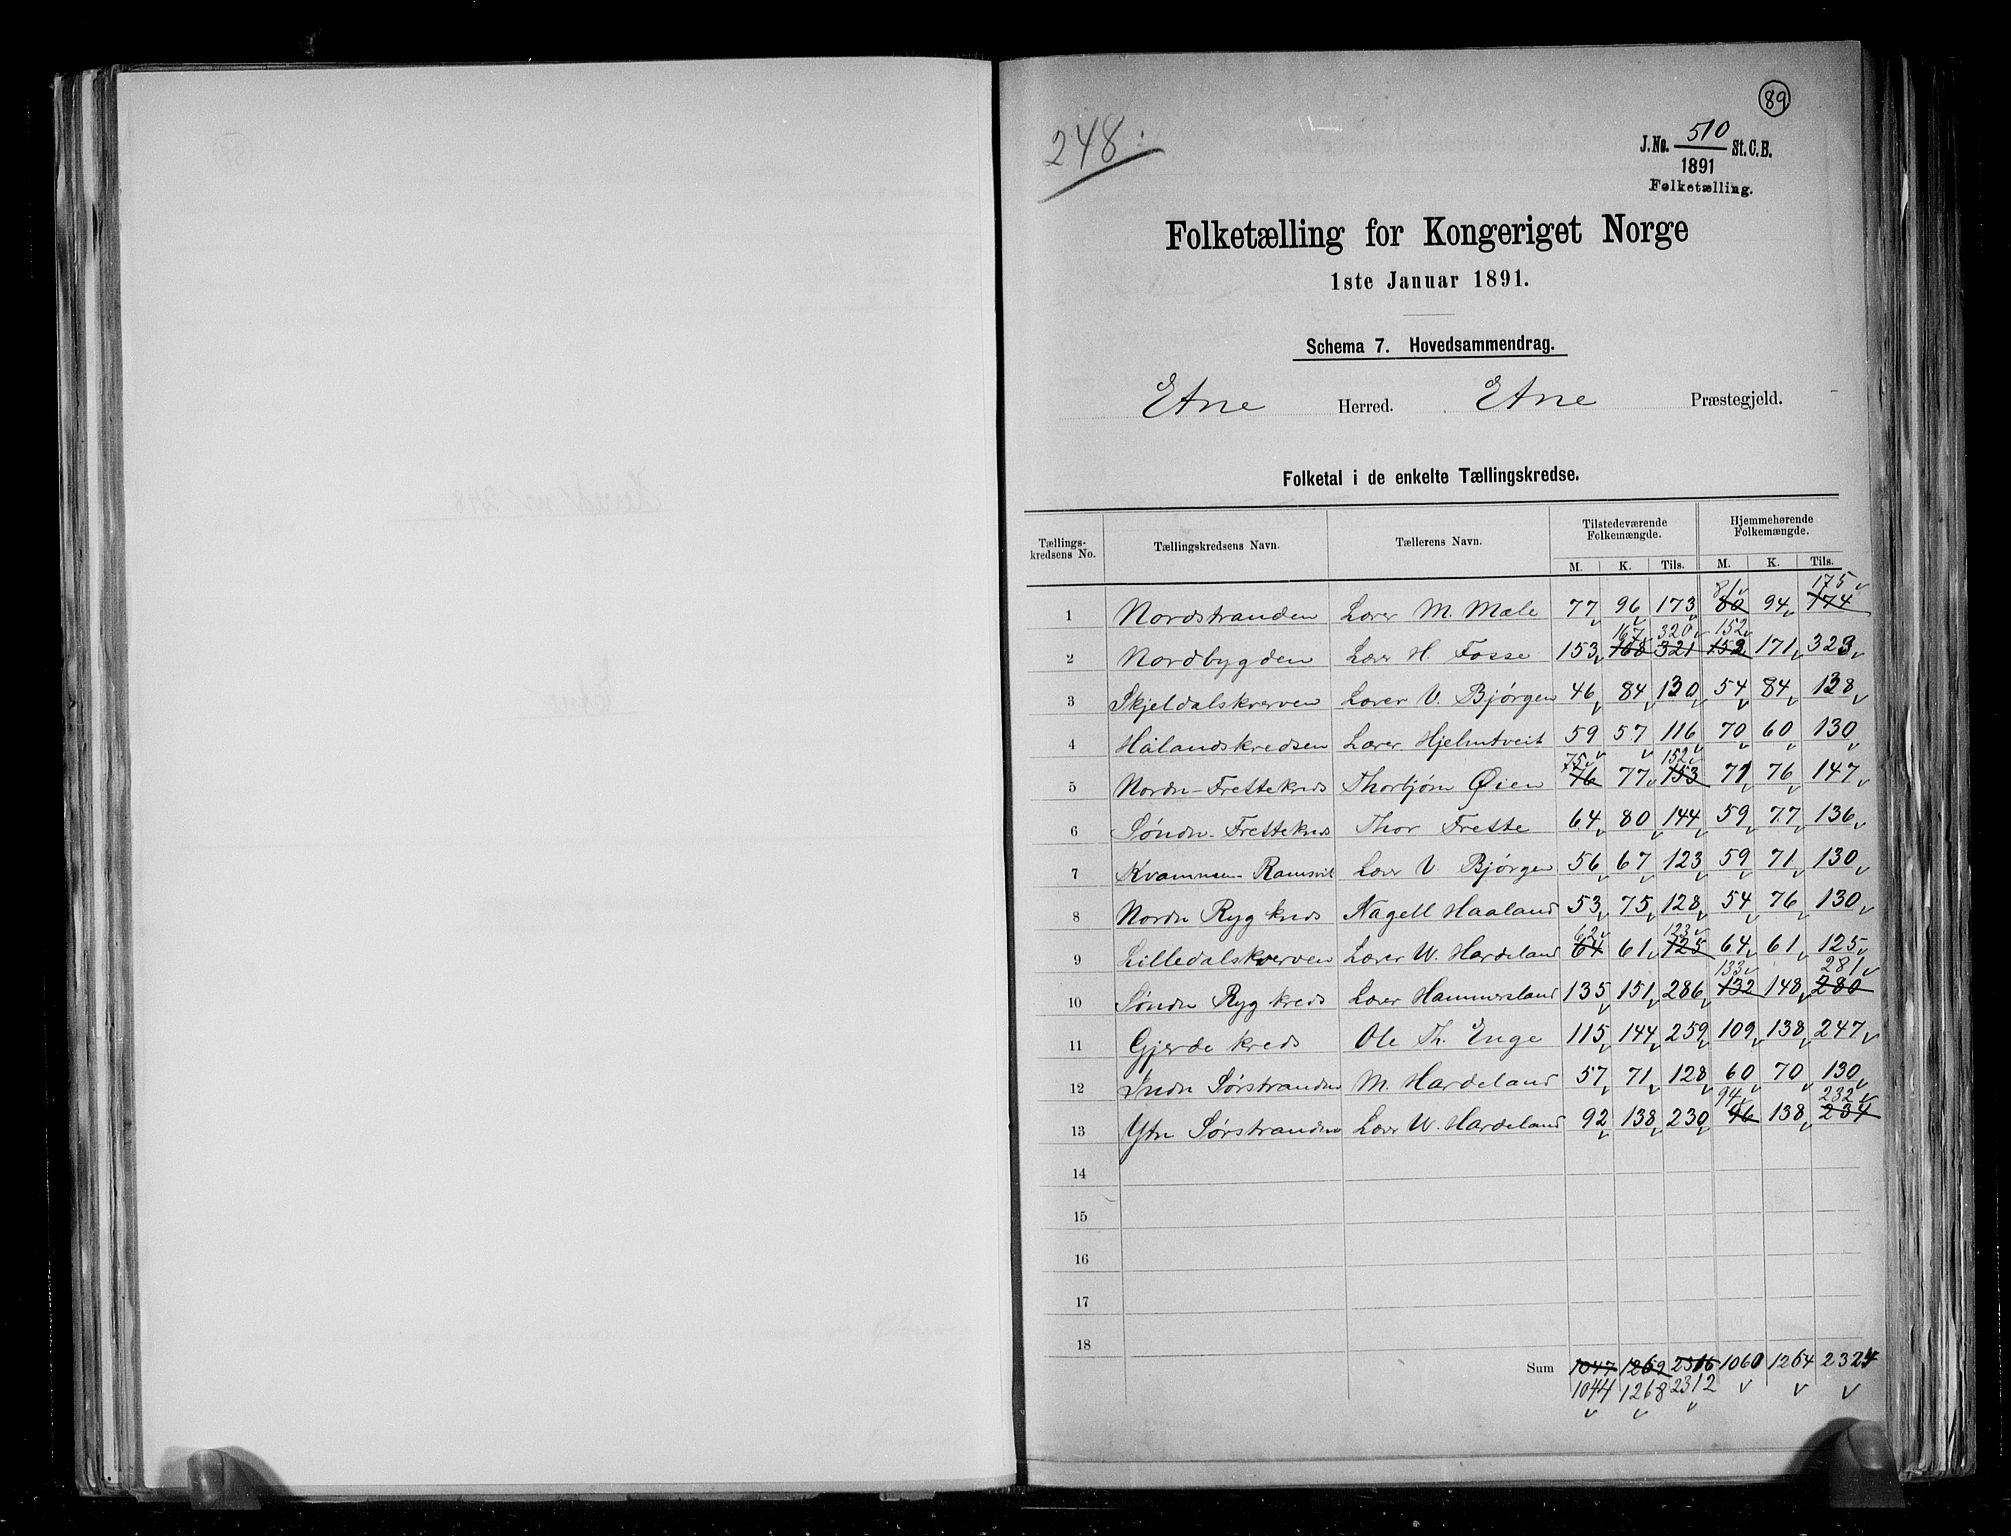 89
248
J. No. 510 St. C. B.
1891
Folketælling.
Folketælling for Kongeriget Norge
1ste Januar 1891.
Schema 7. Hovedsammendrag.
Etne Herred. Etne Præstegjeld.
Folketal i de enkelte Tællingskredse.
Tællings-kredsens No. Tællingskredsens Navn. Tællerens Navn. Tilstedeværende Folkemængde. Hjemmehørende Folkemængde.
M. K. Tils. M. K. Tils.
81 175
1 Nordstranden Lærer M. Mæle 77 96 173 80 94 174
167 320 152
2 Nordbygden Lærer H. Fosse 153 168 321 153 171 323
3 Skjeldalskverven Lærer V. Bjørgen 46 84 130 54 84 138
4 Hålandskredsen Lærer Hjelmtveit 59 57 116 70 60 130
75 152
5 Nordre-Frettekreds Thorbjørn Øien 76 77 153 71 76 147
6 Søndre-Frettekreds Thor Frette 64 80 144 59 77 136
7 Kvammen-Ramsvik Lærer V. Bjørgen 56 67 123 59 71 130
8 Nordre Ryg kreds Nagell Haaland 53 75 128 54 76 130
62 123
9 Lilledalskverven Lærer W. Hardeland 64 61 125 64 61 125
133 281
10 Søndre Ryg kreds Lærer Hammersland 135 151 286 132 148 280
11 Gjerde kreds Ole Th. Enge 115 144 259 109 138 247
12 Indre Sørstranden M. Hardeland 57 71 128 60 70 130
94 232
13 Ytre Sørstranden Lærer W. Hardeland 92 138 230 96 138 234
14
15
16
17
18
Sum 1047 1269 2316 1060 1264 2324
1044 1268 2312